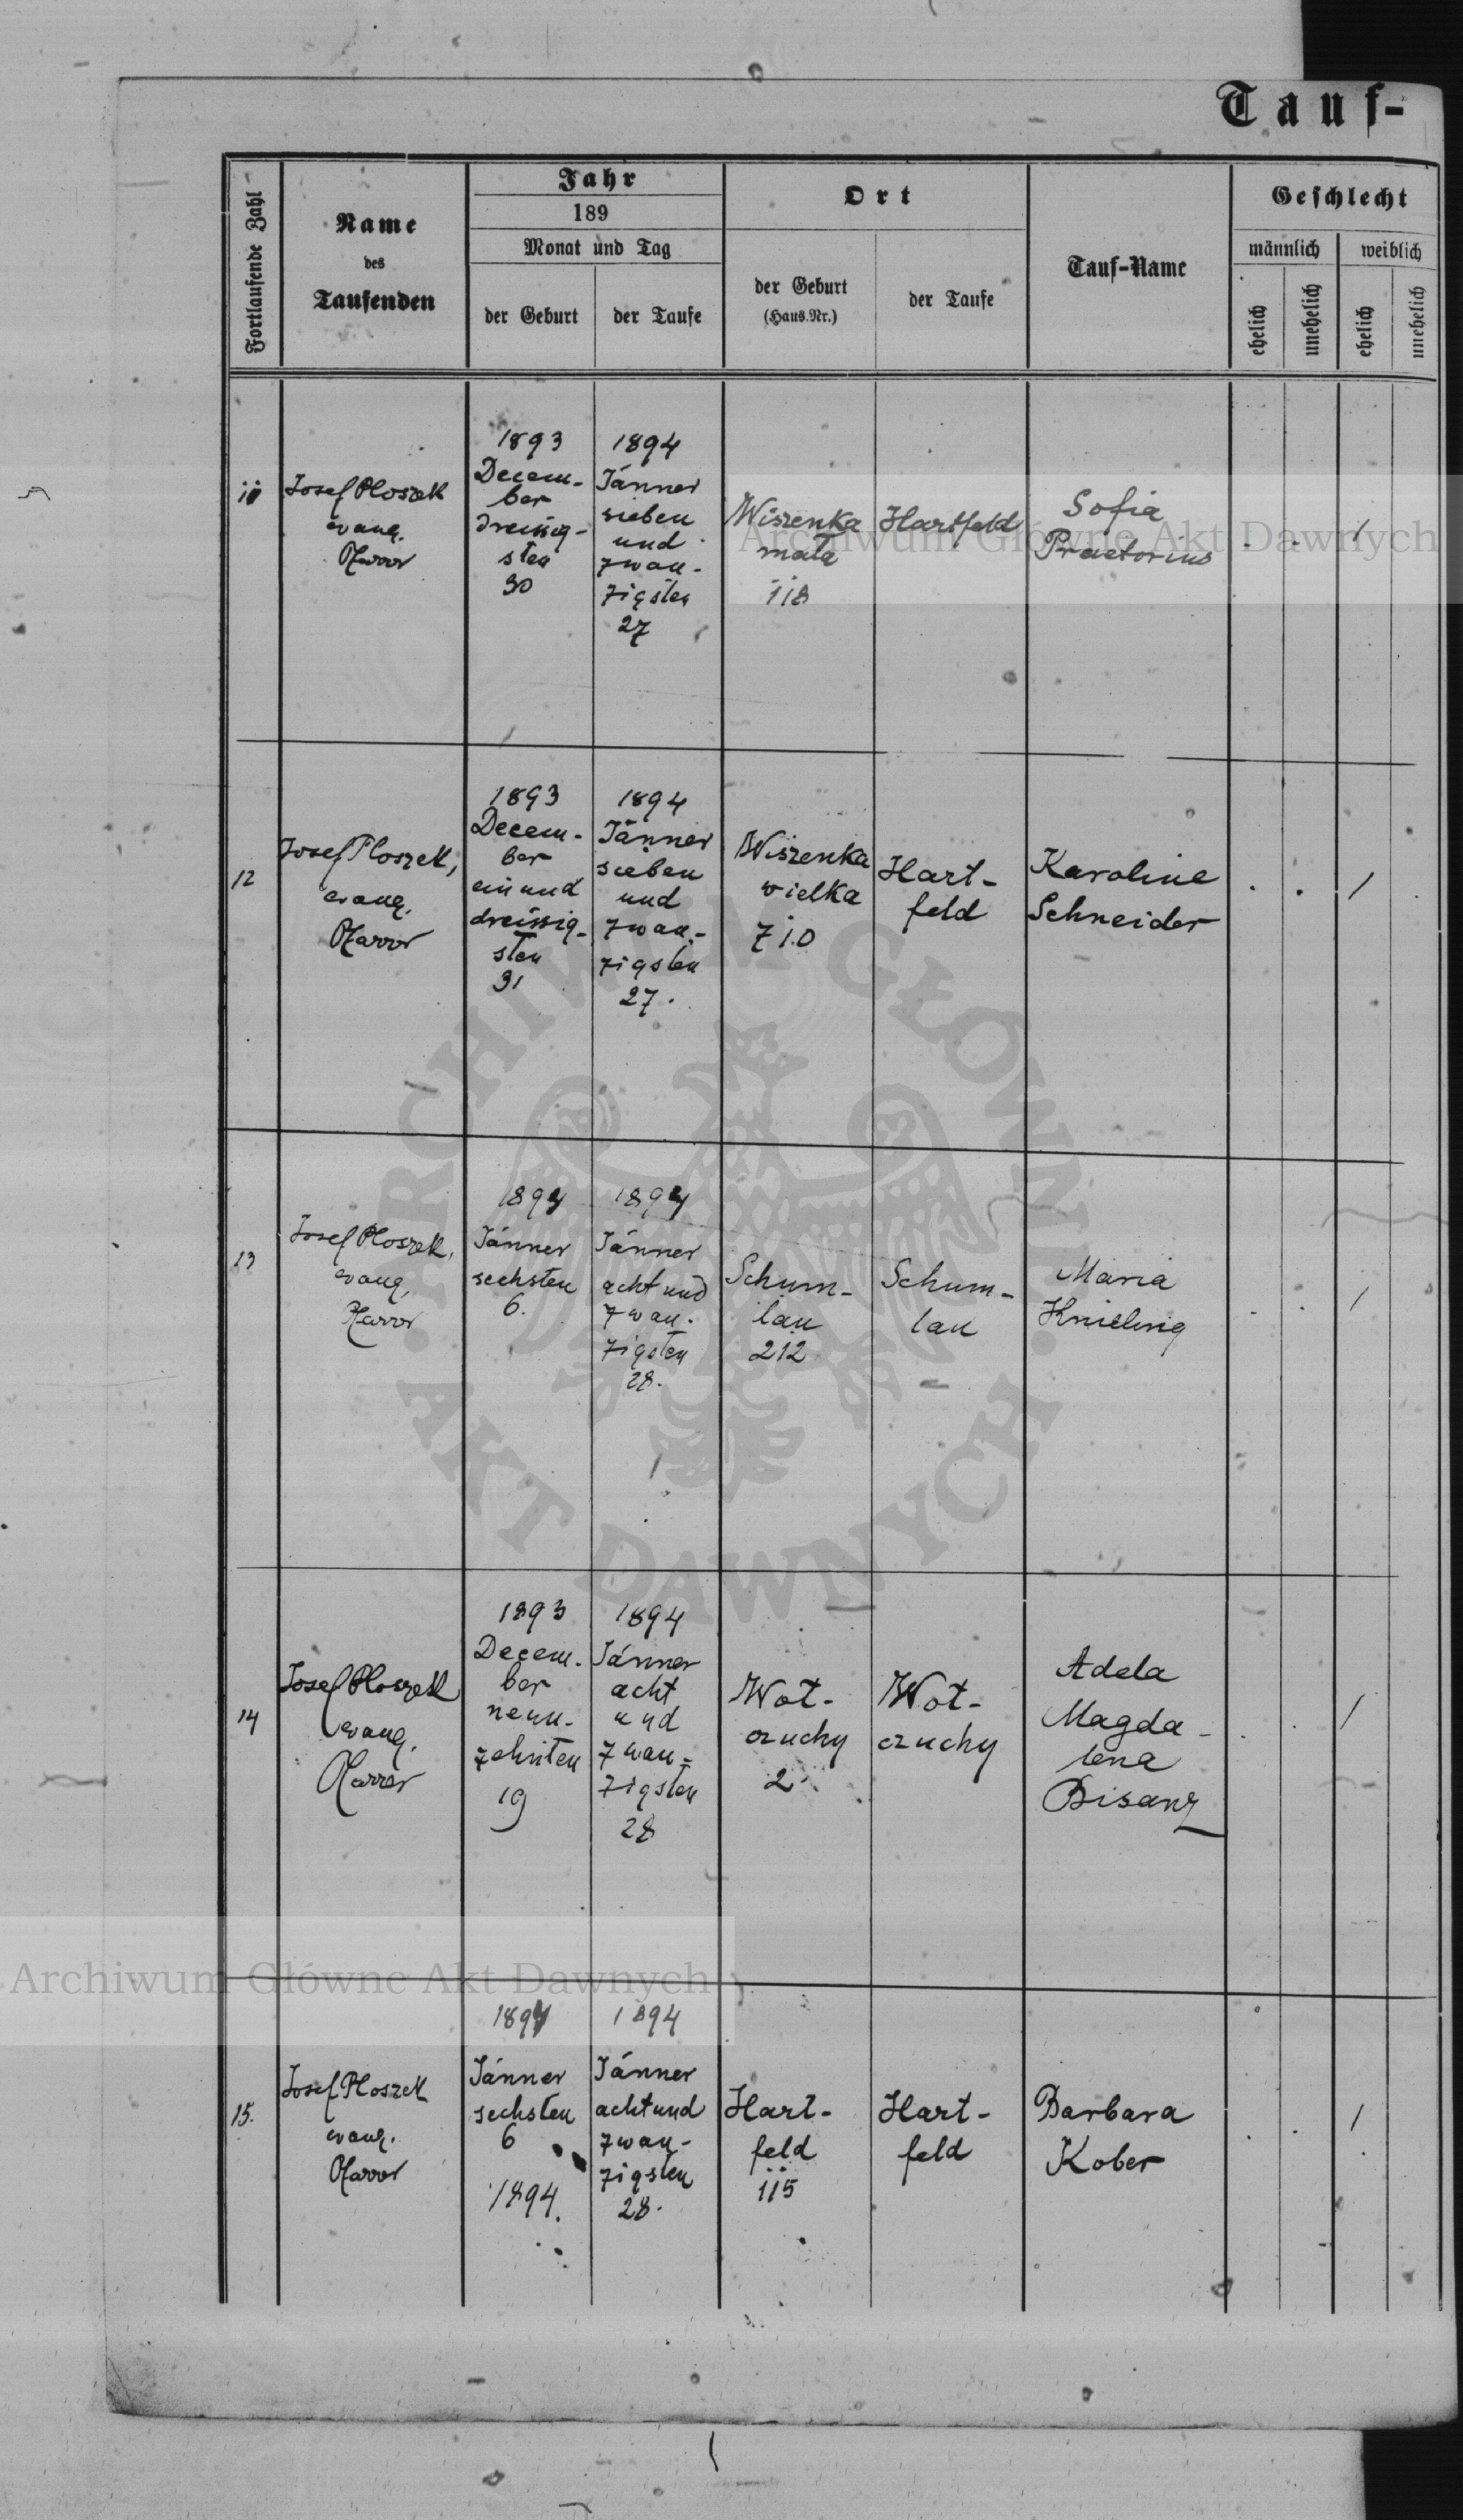 Tauf-
Fortlaufende Zahl
Name
des
Taufenden
Jahr
189
Monat und Tag
der Geburt
der Taufe
Ort
der Geburt
(Haus.Nr.)
der Taufe
Tauf-Name
Geschlecht
männlich
weiblich
ehelich
unehelich
ehelich
unehelich
11
Josef Ploszek
evang.
Pfarrer
1893
Decem-
ber
dreissig-
sten
30
1894
Jänner
sieben
und
zwan-
zigsten
27
Wiszenka
mała
118
Hartfeld
Sofia
Praetorius
1
12
Josef Ploszek,
evang.
Pfarrer
1893
Decem-
ber
ein und
dreissig-
sten
31
1894
Jänner
sieben
und
zwan-
zigsten
27.
Wiszenka
wielka
710
Hart-
feld
Karoline
Schneider
1
13
Josef Ploszek,
evang.
Pfarrer
1894
Jänner
sechsten
6.
1894
Jänner
acht und
zwan-
zigsten
28.
Schum-
lau
212
Schum-
lau
Maria
Knieling
1
14
Josef Ploszek
evang.
Pfarrer
1893
Decem-
ber
neun-
zehnten
19
1894
Jänner
acht
und
zwan-
zigsten
28
Wot-
czuchy
2.
Wot-
czuchy
Adela
Magda-
lena
Bisanz
1
15.
Josef Ploszek
evang.
Pfarrer
1894
Jänner
sechsten
6
1894.
1894
Jänner
acht und
zwan-
zigsten
28.
Hart-
feld
115
Hart-
feld
Barbara
Kober
1
Archiwum Główne Akt Dawnych
ARCHIWUM GŁÓWNE AKT DAWNYCH
Archiwum Główne Akt Dawnych